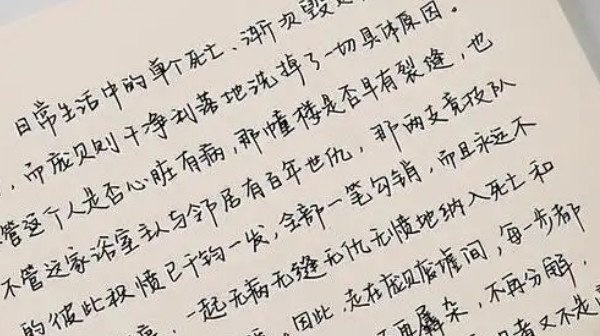 日常生活中的单个死亡、渐次毁
，而庞贝则干净利落地洗掉了一切具体原因。
管这个人是否心脏有病，那幢楼是否早有裂缝，也
不管这家浴室主人与邻居有百年世仇，那两支竞技队
的彼此积愤已千钧一发，全部一笔勾销，而且永远不
，一起无病无缝无仇无愤地纳入死亡和
。因此，走在庞贝废墟间，每一步都
再羼杂，不再分解，
又不是